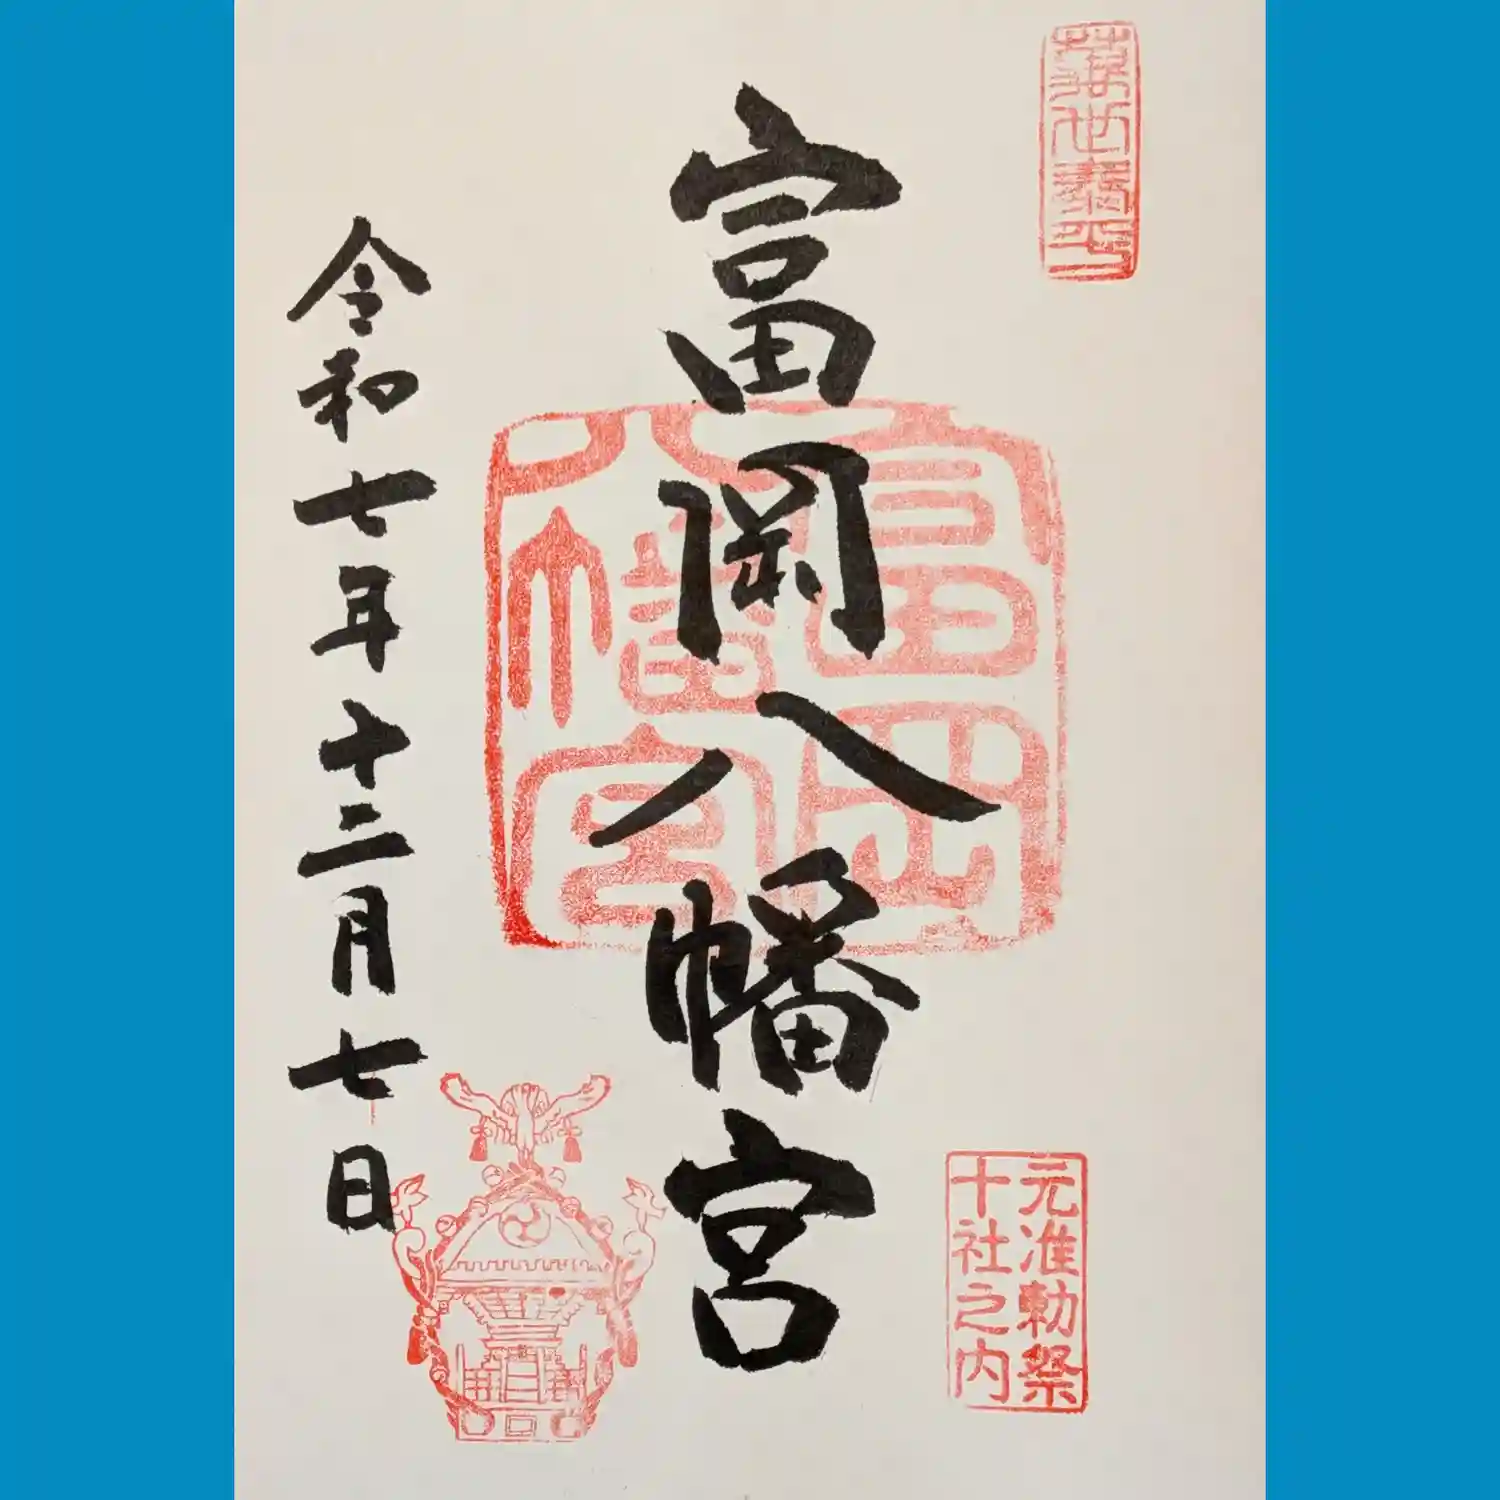 萬世泰平
富岡八幡宮
富岡
八幡宮
元准勅祭
十社之内
令和七年十二月七日